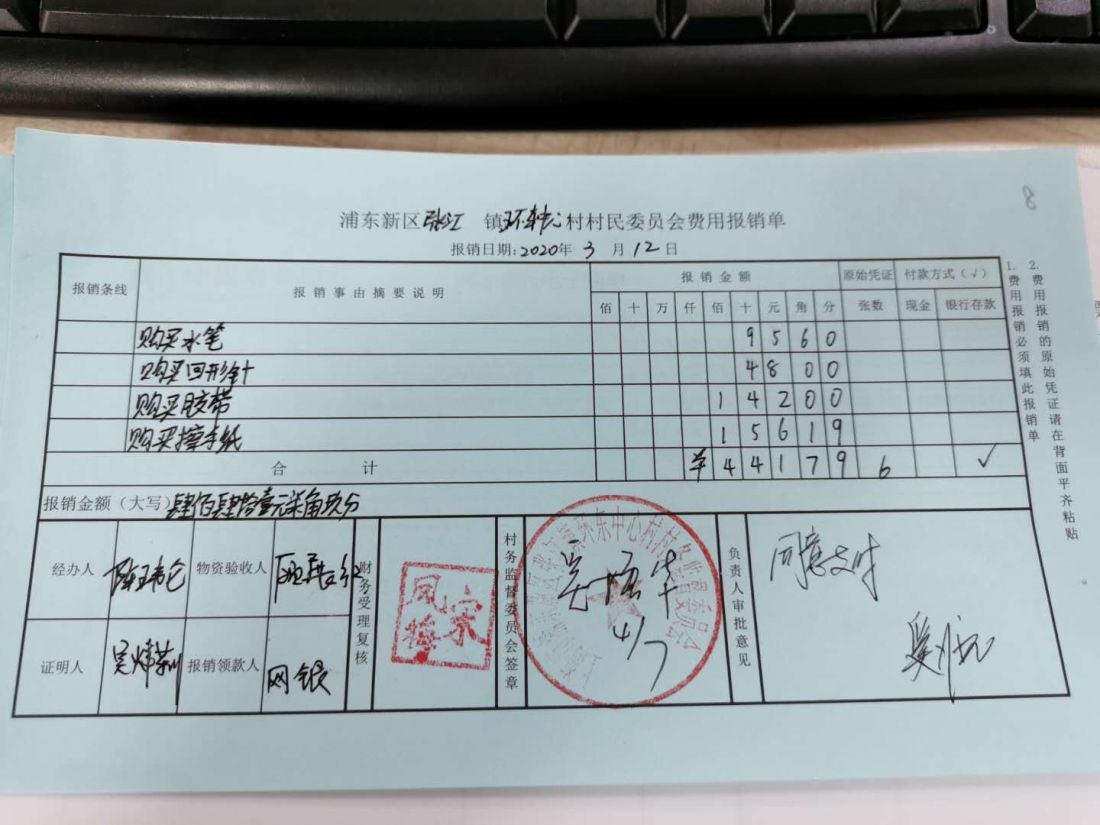 8
浦东新区张江 镇环东中心村村民委员会费用报销单
报销日期:2020年 3 月 12 日
报销条线 报销事由摘要说明 报销金额 原始凭证 付款方式(√)
佰 十 万 仟 佰 十 元 角 分 张数 现金 银行存款
购买水笔 9 5 6 0
购买回形针 4 8 0 0
购买胶带 1 4 2 0 0
购买擦手纸 1 5 6 1 9
合 计 ¥ 4 4 1 7 9 6 √
报销金额(大写)肆佰肆拾壹元柒角玖分
经办人 物资验收人
证明人 报销领款人 网银
财务受理复核
宗凤梅
村务监督委员会签章
4/7
负责人审批意见
同意支付
1. 费用报销必须填此报销单
2. 费用报销的原始凭证请在背面平齐粘贴